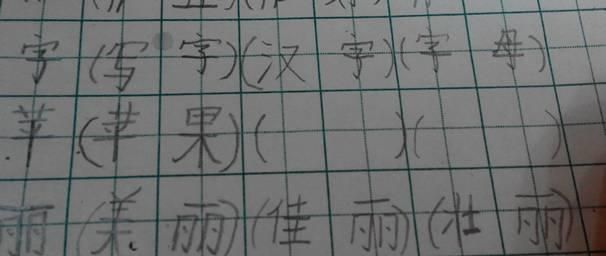 字(写字)(汉字)(字母)
苹(苹果)(  )(  )
丽(美丽)(佳丽)(壮丽)